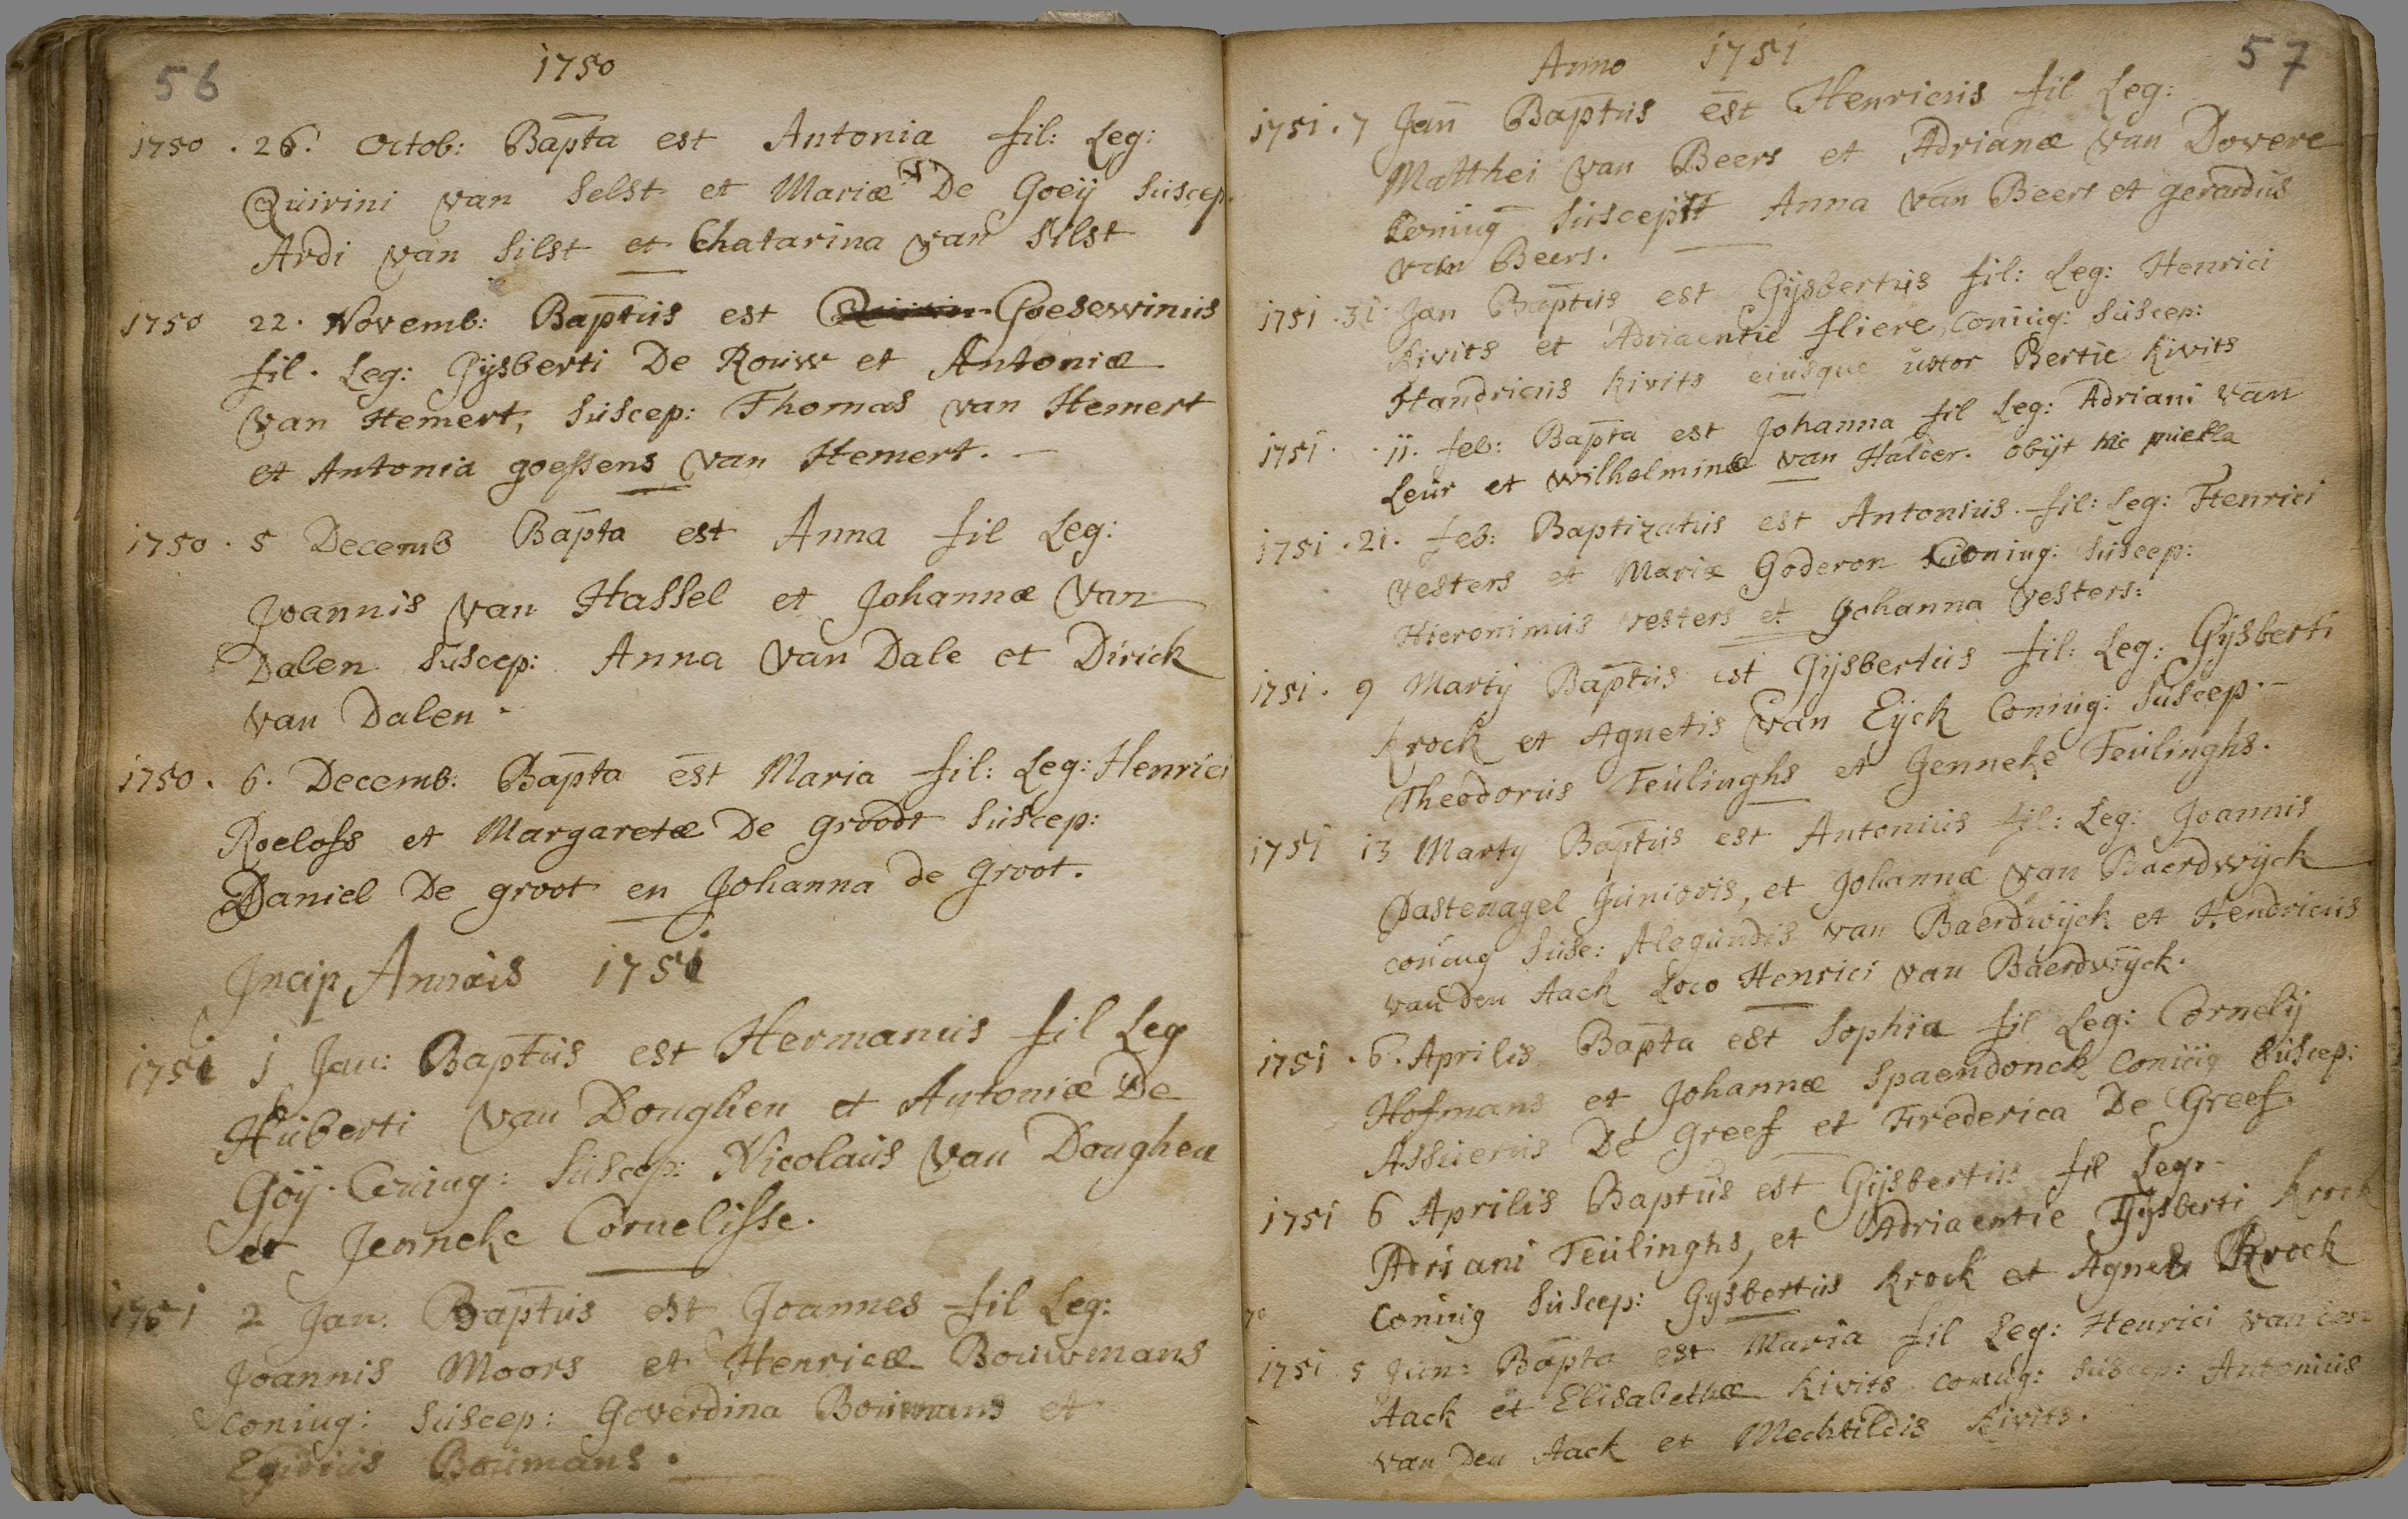 56
1750
1750 . 26. Octob: Bapta est Antonia fil: Leg:
Quirini van Selst et Mariæ De Goeij Suscep
Ardi van Silst et Chatarina van Silst
1750 22. Novemb: Baptus est Goesewinus
fil. Leg: Gijsberti De Rouw et Antoniæ
van Hemert, Suscep: Thomas van Hemert
et Antonia goessens van Hemert. —
1750 . 5 Decemb Bapta est Anna fil Leg:
Joannis van Hassel et Johannæ van
Dalen Suscep: Anna van Dale et Dirick
van Dalen -
1750 . 6. Decemb: Bapta est Maria fil: Leg: Henrici
Roelofs et Margaretæ De groodt Suscep:
Daniel De groot en Johanna de groot.
Incip Annus 1751
1751 1 Jan: Baptus est Hermanus fil Leg
Huberti van Donghen et Antoniæ De
Göy. Coniug: Suscep: Nicolaus van Donghen
et Jenneke Cornelisse.
1751 2 Jan: Baptus est Joannes fil Leg:
Joannis Moors et Henricæ Bouwmans
Coniug: Suscep: Goverdina Boumans et
Egidius Boumans .
57
Anno 1751
1751 . 7 Jan Baptus est Henricus fil Leg:
Matthei van Beers et Adrianæ van Dovere
Coniug Suscepit Anna van Beert et gerardus
van Beers.
1751 . 31 Jan Baptus est Gijsbertus fil: Leg: Henrici
Kivits et Adriaentie fliere, Coniug: Suscep:
Handricus Kivits eiusque uxtor Bertie Kivits
1751 . 11. feb: Bapta est Johanna fil Leg: Adriani van
Leur et Wilhelminæ van Halder. obijt hic puella
1751 . 21. feb: Baptizatus est Antonius. fil: Leg: Henrici
Vesters et Mariæ Goderon Coniug: Suscep:
Hieronimus Vesters et Johanna Vesters:
1751 . 9 Martij Baptus est Gijsbertus fil: Leg: Gijsberti
Krock et Agnetis van Eijck Coniug: Suscep. -
Theodorus Teulinghs et Jenneke Teulinghs.
1751 13 Martij Baptus est Antonius fil: Leg: Joannis
Pastenagel Junioris, et Johannæ van Baerdwijck
coniug Susc: Alegundis van Baerdwijck et Hendricus
van Den Aack Loco Henrici van Baerdwijck.
1751 . 6. Aprilis Bapta est Sophia fil Leg: Cornelij
Hofmans et Johannæ Spaendonck Coniug Suscep:
Assuerus De greef et Frederica De Greef.
1751 6 Aprilis Baptus est Gijsbertus fil Leg. -
Adriani Teulinghs, et Adriaentie Gijsberti Krock
Coniug Suscep: Gijsbertus Krock et Agnes Krock
1751 5 Jun: Bapta est Maria fil Leg: Henrici van den
Aack et Elisabethæ Kivits coniug: Suscep: Antonius
van Den Aack et Mechtildis Kivits.